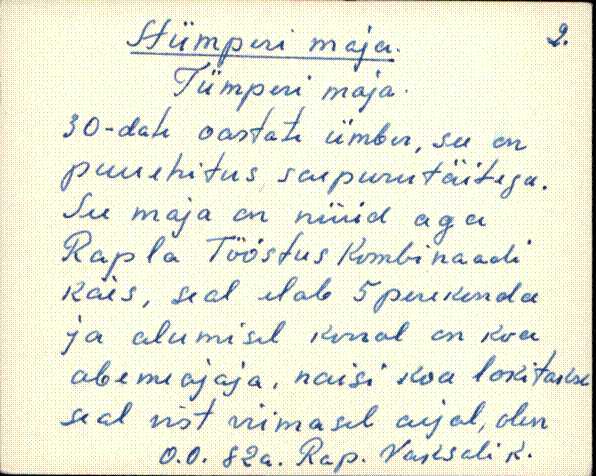 Stümperi maja. 2.
Tümperi maja.
30-date aastate ümber, see on
puuehitus saepurutäitega.
See maja on nüüd aga
Rapla Tööstus Kombinaadi
käes, seal elab 5 perekonda
ja alumisel korral on koa
abemeajaja, naisi koa lokitakse
seal vist viimasel aejal, olen
O.O. 82a. Rap. Vaksali k.